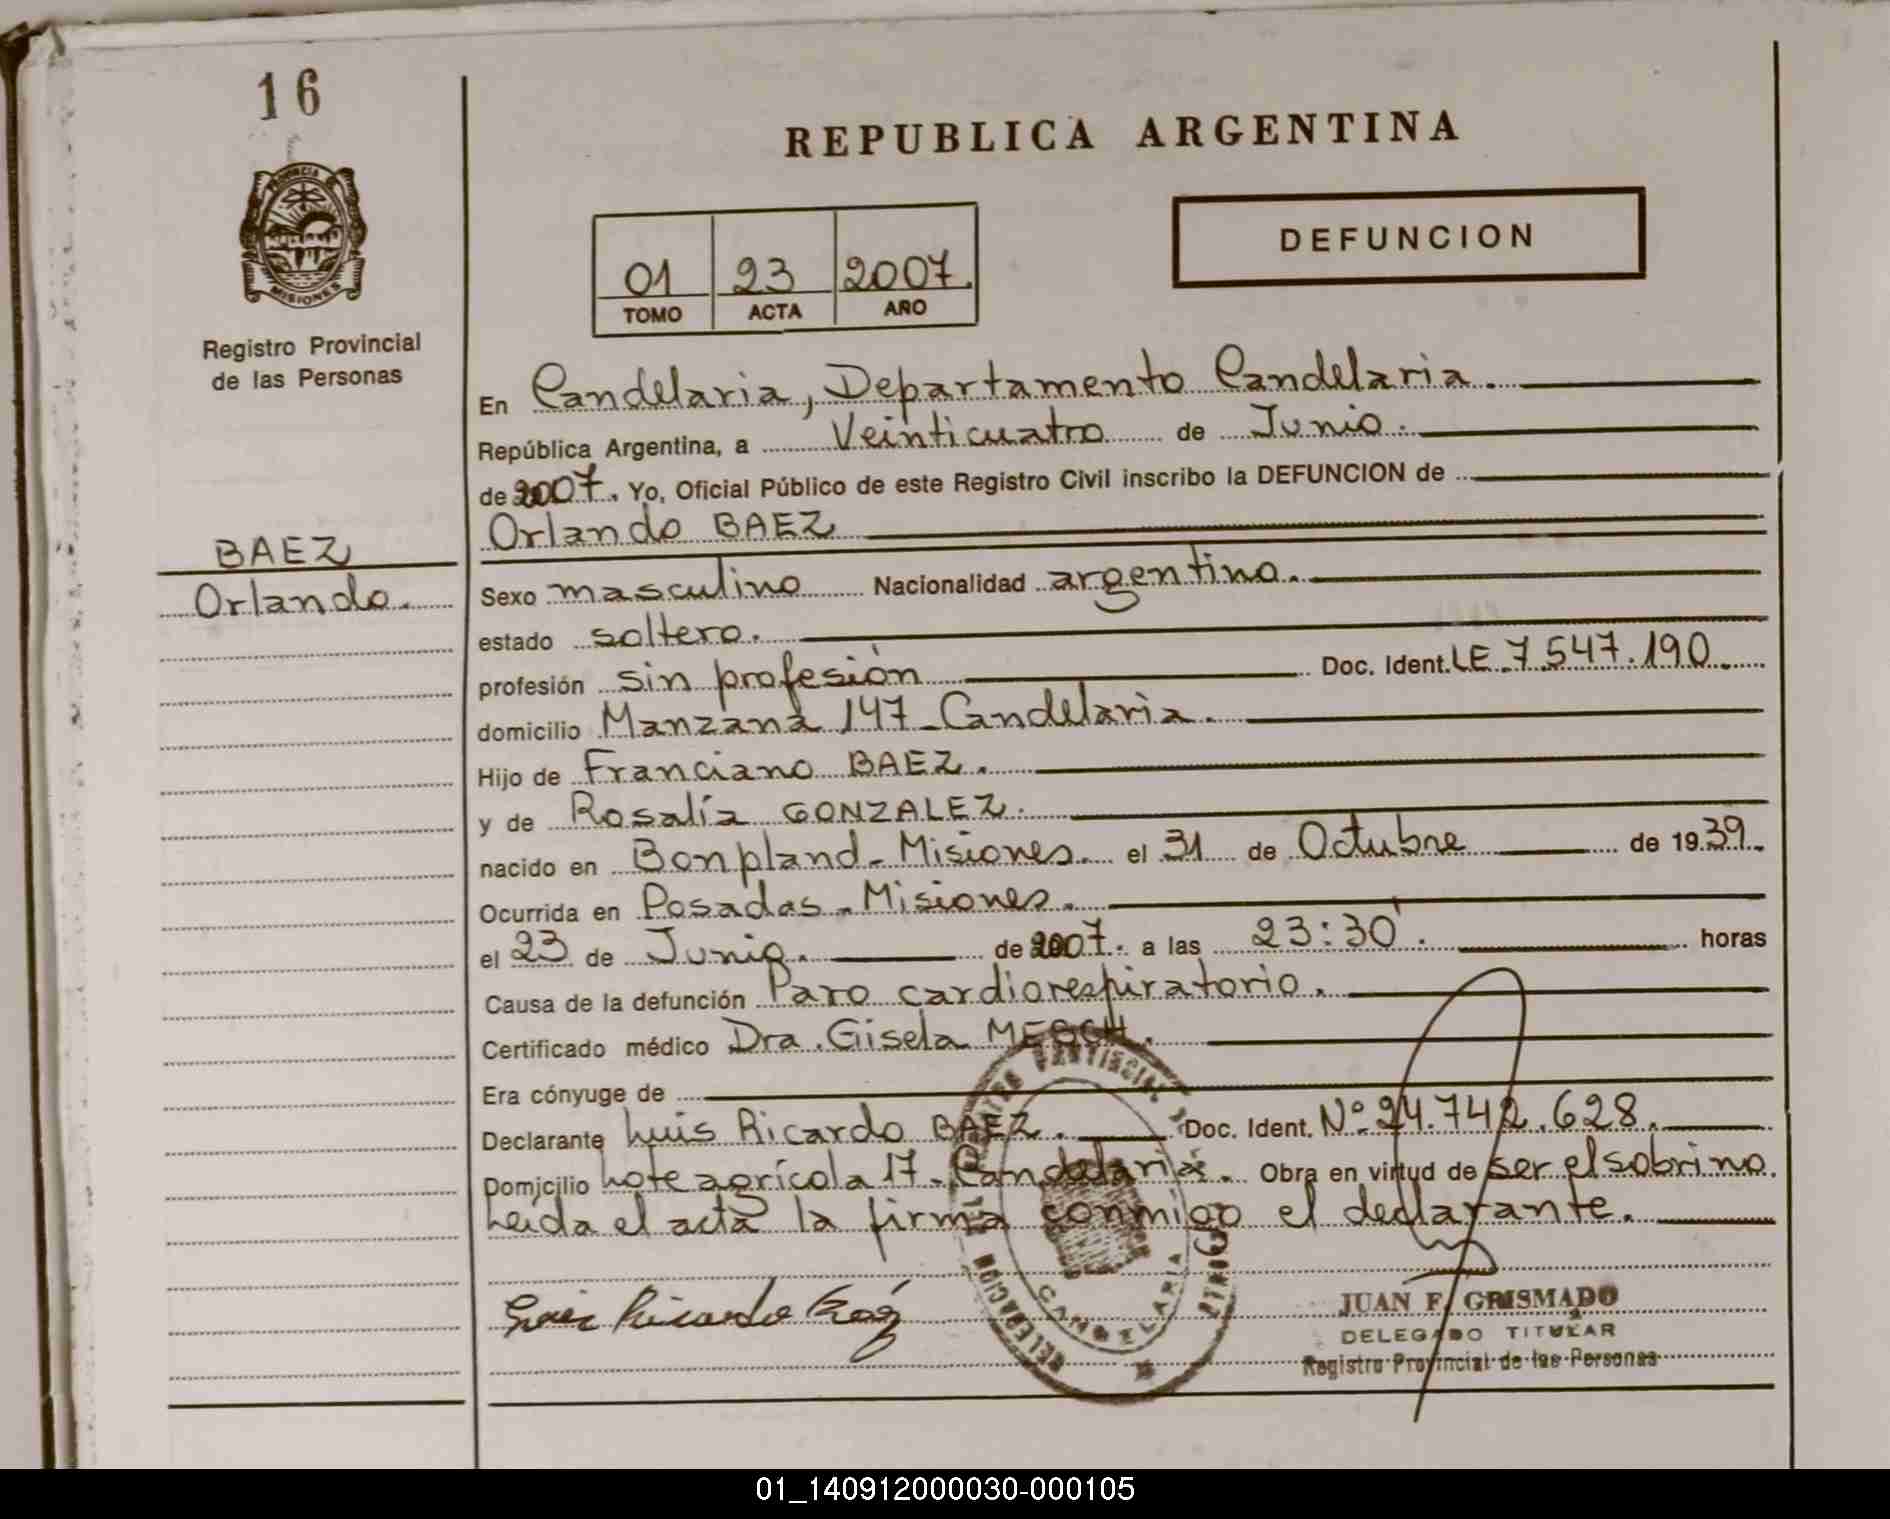 16
PROVINCIA DE
MISIONES
Registro Provincial
de las Personas
BAEZ
Orlando.
REPUBLICA ARGENTINA
01 23 2007.
TOMO ACTA AÑO
DEFUNCION
En Candelaria, Departamento Candelaria.
República Argentina, a Veinticuatro de Junio.
de 2007. Yo, Oficial Público de este Registro Civil inscribo la DEFUNCION de
Orlando BAEZ
Sexo masculino Nacionalidad argentino.
estado soltero.
profesión sin profesión Doc. Ident. LE 7.547.190.
domicilio Manzana 147 - Candelaria.
Hijo de Franciano BAEZ.
y de Rosalía GONZALEZ.
nacido en Bonpland - Misiones. el 31 de Octubre de 1939.
Ocurrida en Posadas - Misiones.
el 23 de Junio. de 2007. a las 23:30'. horas
Causa de la defunción Paro cardiorespiratorio.
Certificado médico Dra. Gisela
Era cónyuge de
Declarante Luis Ricardo BAEZ. Doc. Ident. Nº 24.742.628.
Domicilio Lote agrícola 17 - Candelaria. Obra en virtud de ser el sobrino.
Leída el acta la firma conmigo el declarante.
Luis Ricardo Báez
DELEGACION CANDELARIA
JUAN F. GRISMADO
DELEGADO TITULAR
Registro Provincial de las Personas
01_140912000030-000105